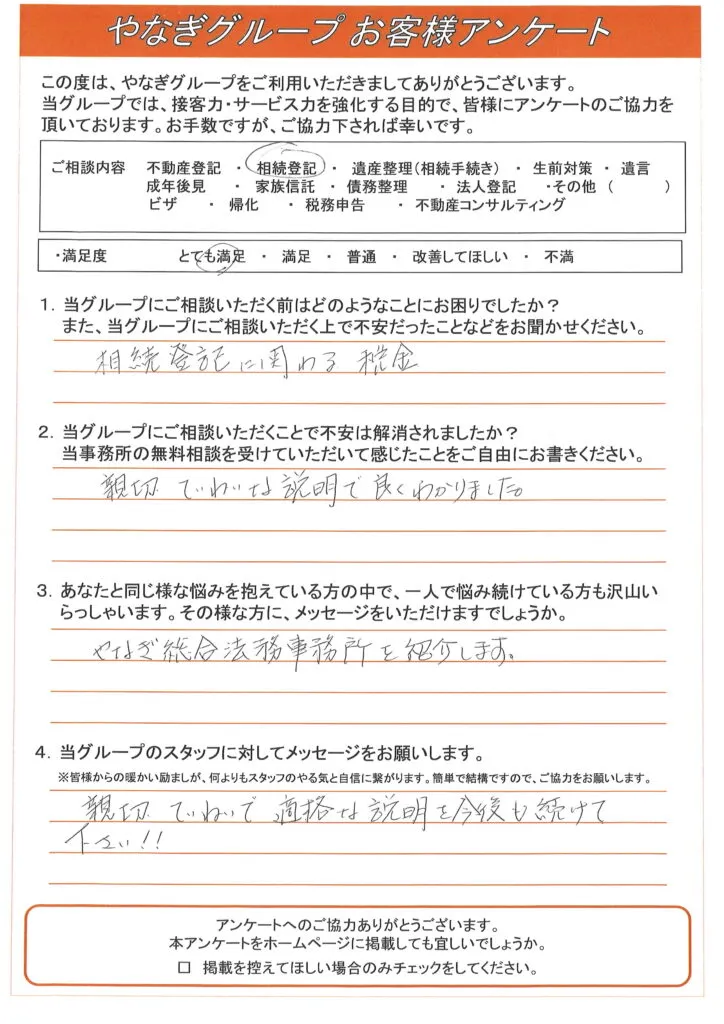 やなぎグループ お客様アンケート
この度は、やなぎグループをご利用いただきましてありがとうございます。
当グループでは、接客力・サービス力を強化する目的で、皆様にアンケートのご協力を
頂いております。お手数ですが、ご協力下されば幸いです。
ご相談内容 不動産登記 ・ 相続登記 ・ 遺産整理(相続手続き) ・ 生前対策 ・ 遺言
成年後見 ・ 家族信託 ・ 債務整理 ・ 法人登記 ・その他 ( )
ビザ ・ 帰化 ・ 税務申告 ・ 不動産コンサルティング
・満足度 とても満足 ・ 満足 ・ 普通 ・ 改善してほしい ・ 不満
1. 当グループにご相談いただく前はどのようなことにお困りでしたか?
また、当グループにご相談いただく上で不安だったことなどをお聞かせください。
相続登記に関わる税金
2. 当グループにご相談いただくことで不安は解消されましたか?
当事務所の無料相談を受けていただいて感じたことをご自由にお書きください。
親切 ていねいな説明で良くわかりました。
3. あなたと同じ様な悩みを抱えている方の中で、一人で悩み続けている方も沢山い
らっしゃいます。その様な方に、メッセージをいただけますでしょうか。
やなぎ総合法務事務所を紹介します。
4. 当グループのスタッフに対してメッセージをお願いします。
※皆様からの暖かい励ましが、何よりもスタッフのやる気と自信に繋がります。簡単で結構ですので、ご協力をお願いします。
親切 ていねいで 適格な説明を今後も続けて
下さい!!
アンケートへのご協力ありがとうございます。
本アンケートをホームページに掲載しても宜しいでしょうか。
□ 掲載を控えてほしい場合のみチェックをしてください。